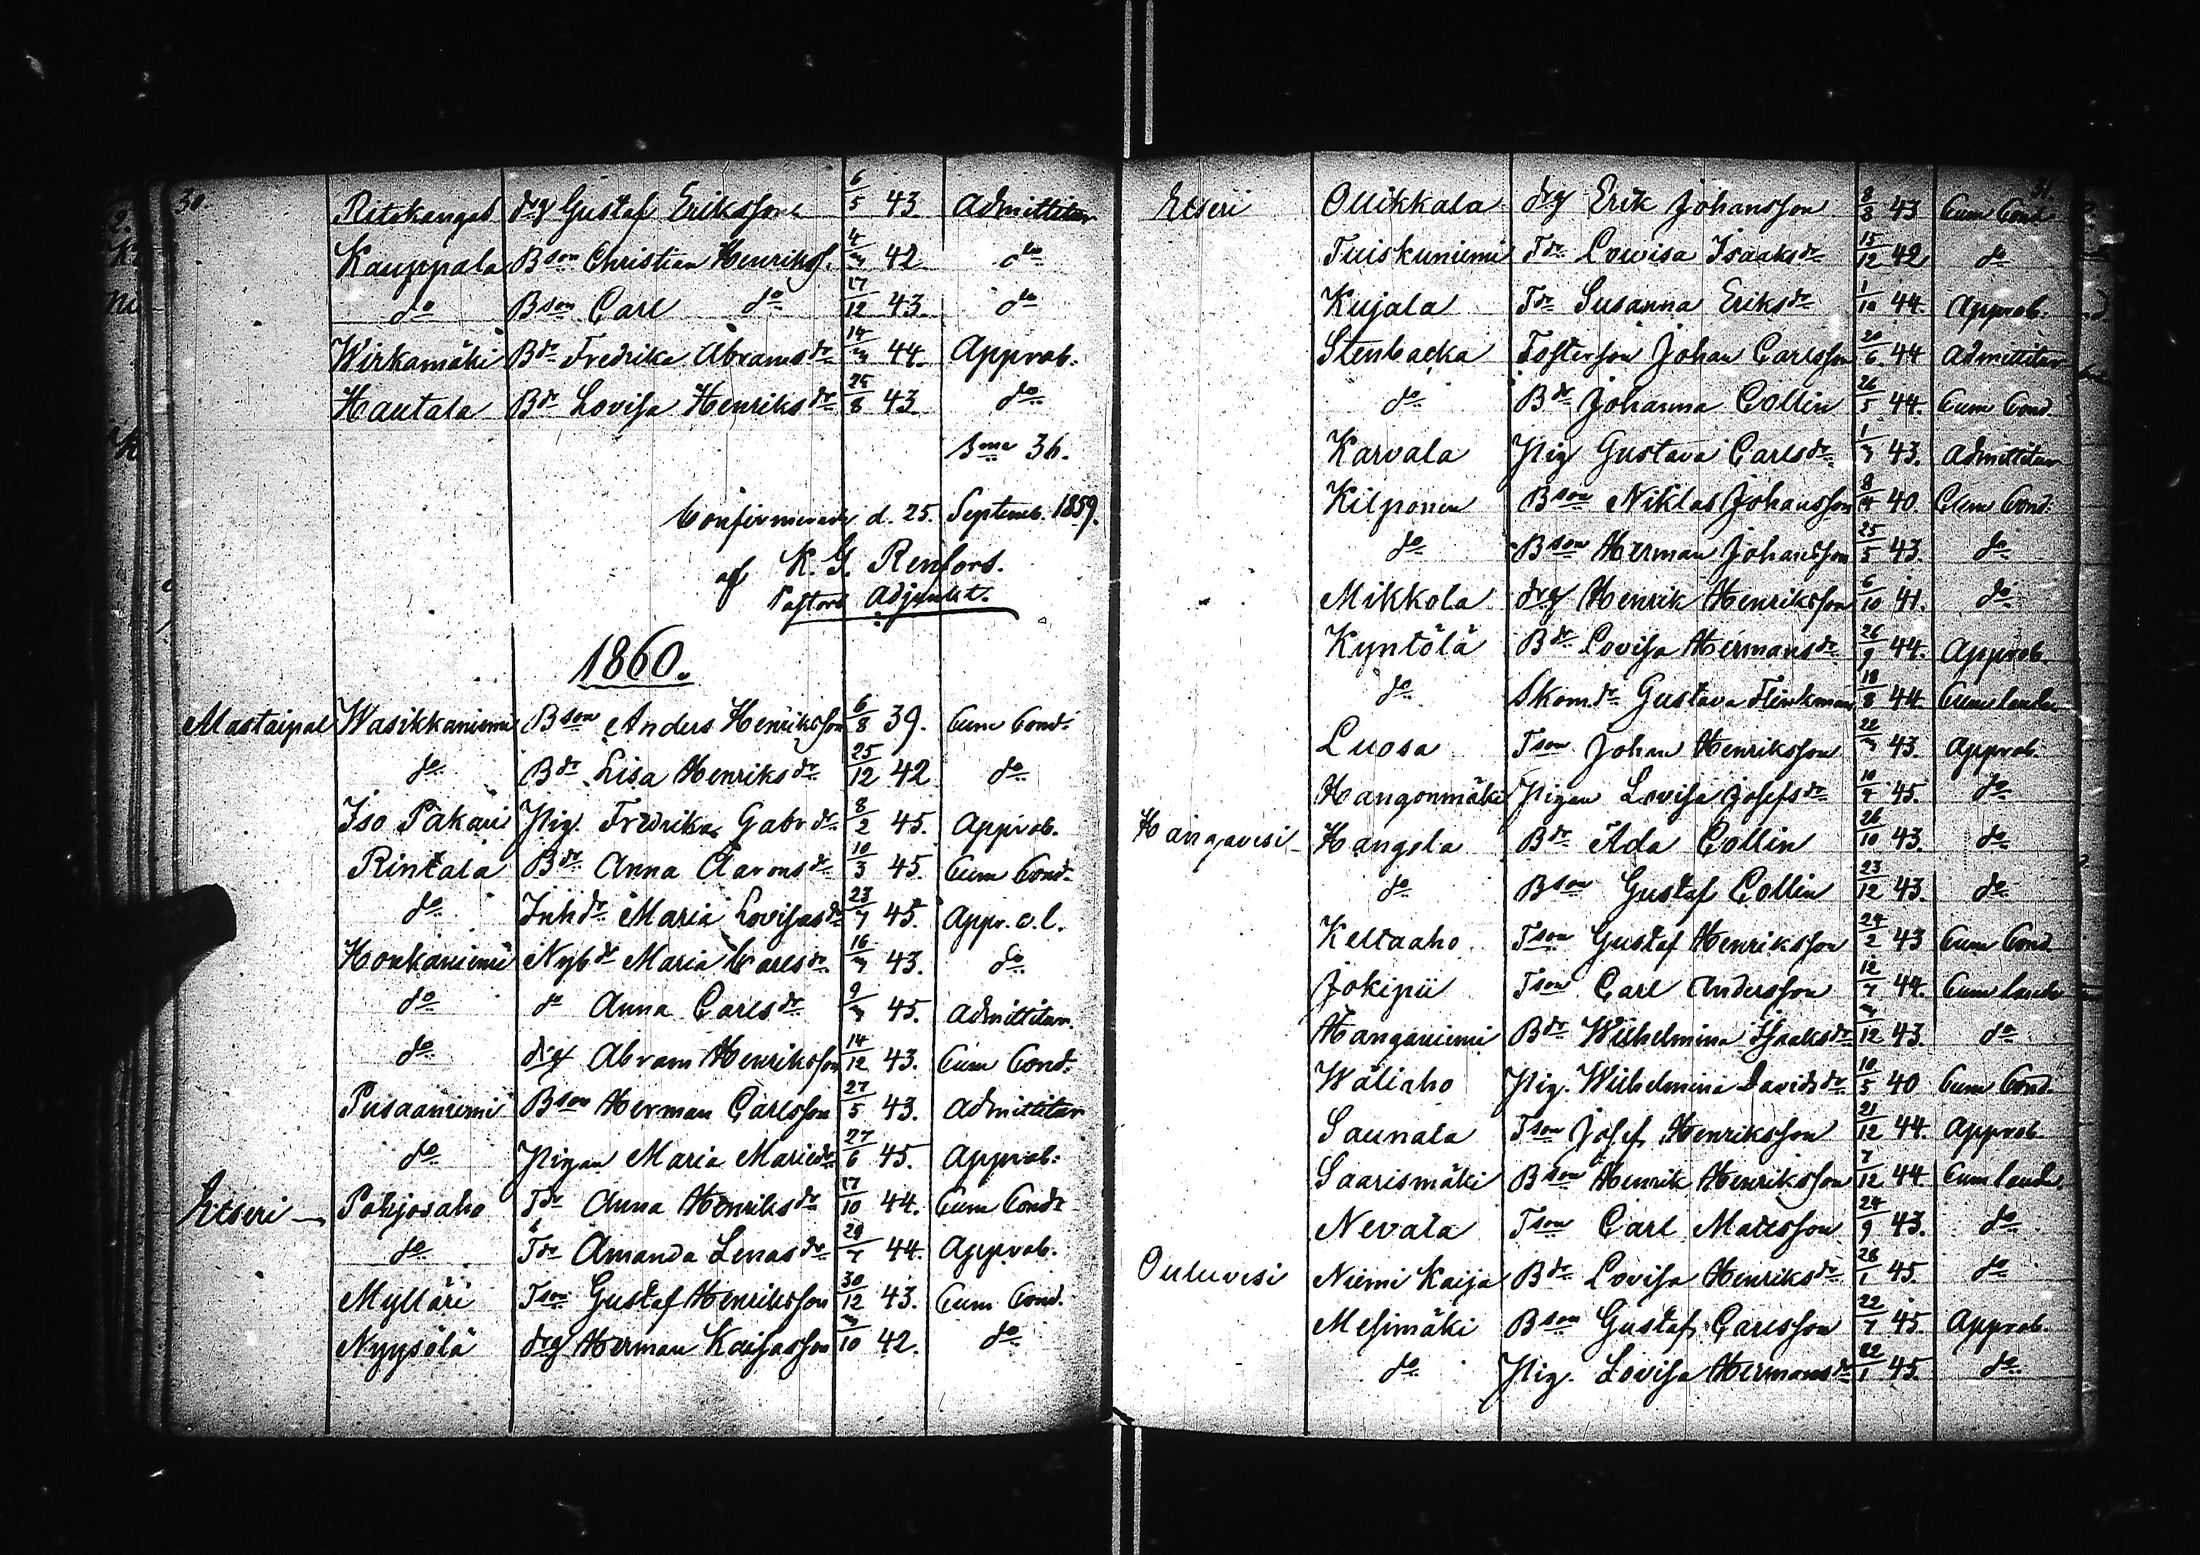 30.
Ritokangas drg Gustaf Eriksson 6/5 43 Admittitur
Kauppala Bson Christian Henrikss. 4/ 42 do
do Bson Carl do 17/12 43 do
Wirkamäki Bdr Fredrika Abramsdr 14/ 44. Approb.
Hautala Bdr Lovisa Henriksdr 25/8 43 do
Sma 36.
Confirmerade d. 25. Septemb. 1859.
af K. G. Renfors.
Pastors Adjunkt.
1860.
Mastaipal Wasikkaniemi Bson Anders Henriksson 6/8 39. Cum Cond.
do Bdr Lisa Henriksdr 25/12 42 do
Iso Pakari Pig. Fredrika Gabrdr 8/2 45. Approb.
Rintala Bdr Anna Aaronsdr 10/3 45. Cum Cond.
do Inhdr Maria Lovisasdr 23/7 45. Appr. c. l.
Honkaniemi Nybdr Maria Carlsdr 16/ 43. do
do do Anna Carlsdr 9/ 45. Admittitur.
do drg Abram Henriksson 14/12 43. Cum Cond.
Pusaaniemi Bson Herman Carlsson 27/5 43. Admittitur
do Pigan Maria Mariedr 27/6 45. Approb.
Etseri Pohjosaho Tdr Anna Henriksdr 17/10 44. Cum Cond.
do Tdr Amanda Lenasdr 29/7 44. Approb.
Mylläri Tson Gustaf Henriksson 30/12 43. Cum Cond.
Nyysölä drg Herman Kaisasson /10 42. do
31.
Etseri Ollikkala drg Erik Johansson 8/8 43 Cum Cond
Tuiskuniemi Tdr Lowisa Isaaksdr 15/12 42 do
Kujala Tdr Susanna Eriksdr 1/10 44. Approb.
Stenbacka Fosterson Johan Carlsson 20/6 44 Admittitur
do Bdr Johanna Collin 26/5 44. Cum Cond.
Karvala Pig Gustava Carlsdr 1/ 43. Admittitur
Kilponen Bson Niklas Johansson 8/4 40. Cum Cond.
do Bson Herman Johansson 25/5 43. do
Mikkola drg Henrik Henriksson 6/10 41. do
Kyntölä Bdr Lovisa Hermansdr 26/9 44. Approb.
do Skomdr Gustava Flinkman 18/8 44. Cum laude
Luosa Tson Johan Henriksson 22/ 43. Approb.
Hangonmäki Pigan Lovisa Josefsdr 10/4 45. do
Hangavesi Hangsla Bdr Ada Collin 26/10 43. do
do Bson Gustaf Collin 23/12 43. do
Keltaaho Tson Gustaf Henriksson 24/2 43 Cum Cond
Jokipii Tson Carl Andersson 12/7 44. Cum laude
Hanganiemi Bdr Wilhelmina Isaaksdr /12 43. do
Wäliaho Pig. Wilhelmina Davidsdr 10/5 40 Cum Cond.
Saunala Tson Josef Henriksson 21/12 44. Approb.
Saarismäki Bson Henrik Henriksson 7/12 44. Cum laude.
Nevala Tson Carl Mattsson 24/9 43. do
Ouluvesi Niemi Kaija Bdr Lovisa Henriksdr 28/1 45. do
Mesimäki Bson Gustaf Carlsson 22/7 45. Approb.
do Pig. Lovisa Hermansdr 22/1 45. do